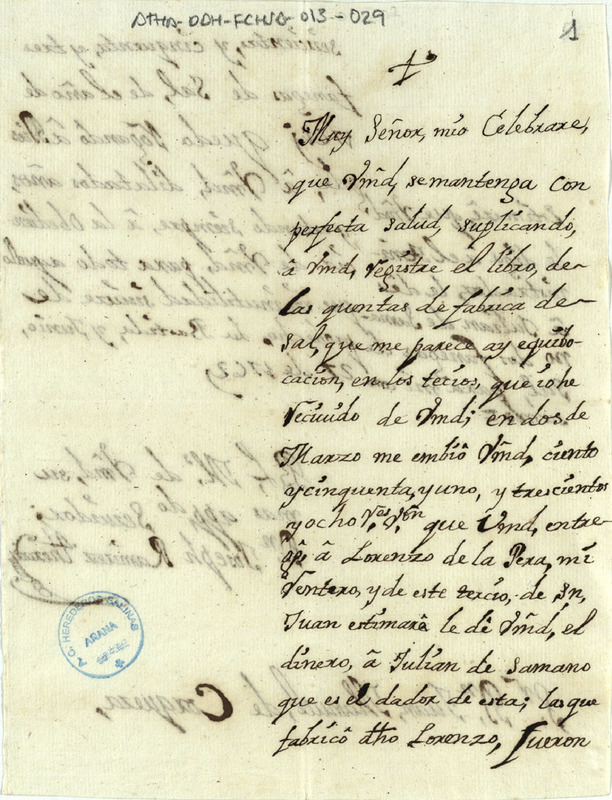 ATHA-DDH-FCHJA-013-029
1
Muy Señor, mio Celebrare,
que Vmd, se mantenga con
perfecta salud, suplicando,
â Vmd, registre el libro, de
las quentas de fabrica de
sal, que me parece ay equibo-
cacion, en los tecios, que io he
recivido de Vmd; en dos de
Marzo me embiô Vmd, ciento
y cinquenta, y uno, y trescientos
y ocho Rs. Von que Vmd, entre-
gô â Lorenzo de la Pera, mi
Ventero, y de este tercio, de Sn,
Juan estimarâ le dê Vmd, el
dinero, â Julian de Samano
que es el dador de esta; las que
fabricô dho Lorenzo, fueron
C. HEREDEROS SALINAS
ARANA